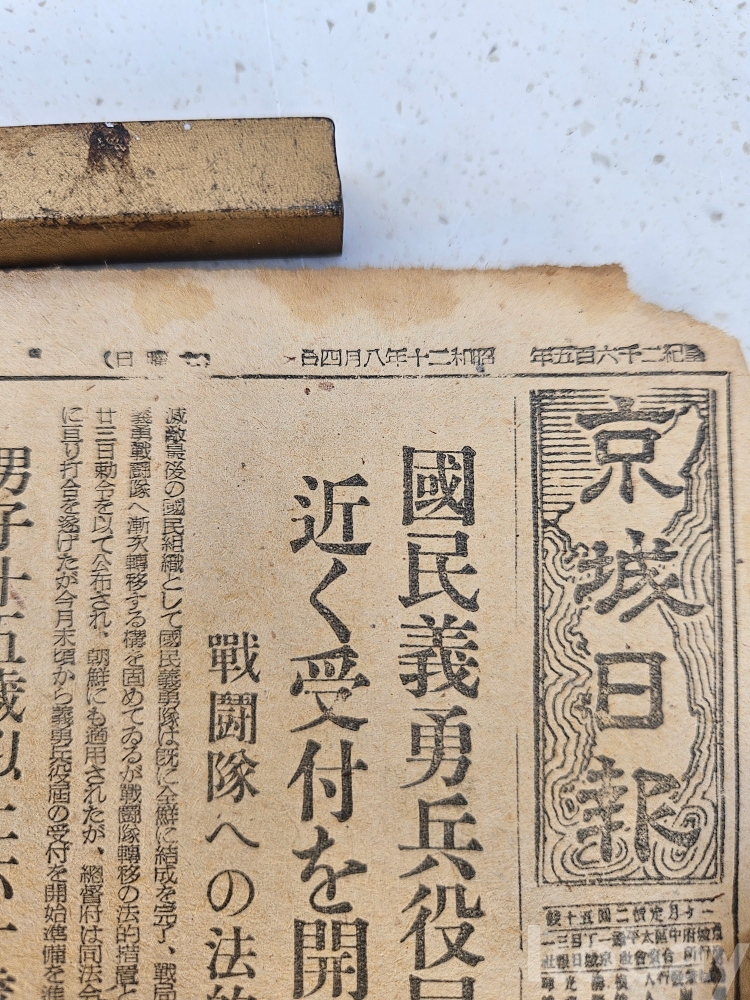 皇紀二千六百五年 昭和二十年八月四日 (土曜日)
京城日報
國民義勇兵役
近く受付を開
戰闘隊への法的
滅敵皇後の國民組織として國民義勇隊は既に全鮮に結成を完了、戰局
義勇戰闘隊へ漸次轉移する構を固めてゐるが戰闘隊轉移の法的措置と
廿三日勅令を以て公布され、朝鮮にも適用されたが、總督府は同法令
に亘り打合を遂げたが今月末頃から義勇兵役屆の受付を開始準備を進
男子十五歳以上六十
一ケ月定價二圓五十錢